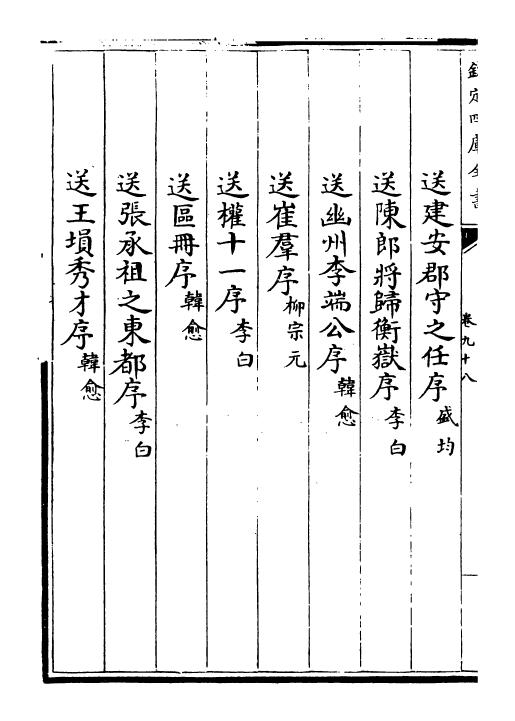 欽定四庫全書
卷九十八
送建安郡守之任序 盛均
送陳郎將歸衡嶽序 李白
送幽州李端公序 韓愈
送崔羣序 柳宗元
送權十一序 李白
送區冊序 韓愈
送張承祖之東都序 李白
送王塤秀才序 韓愈